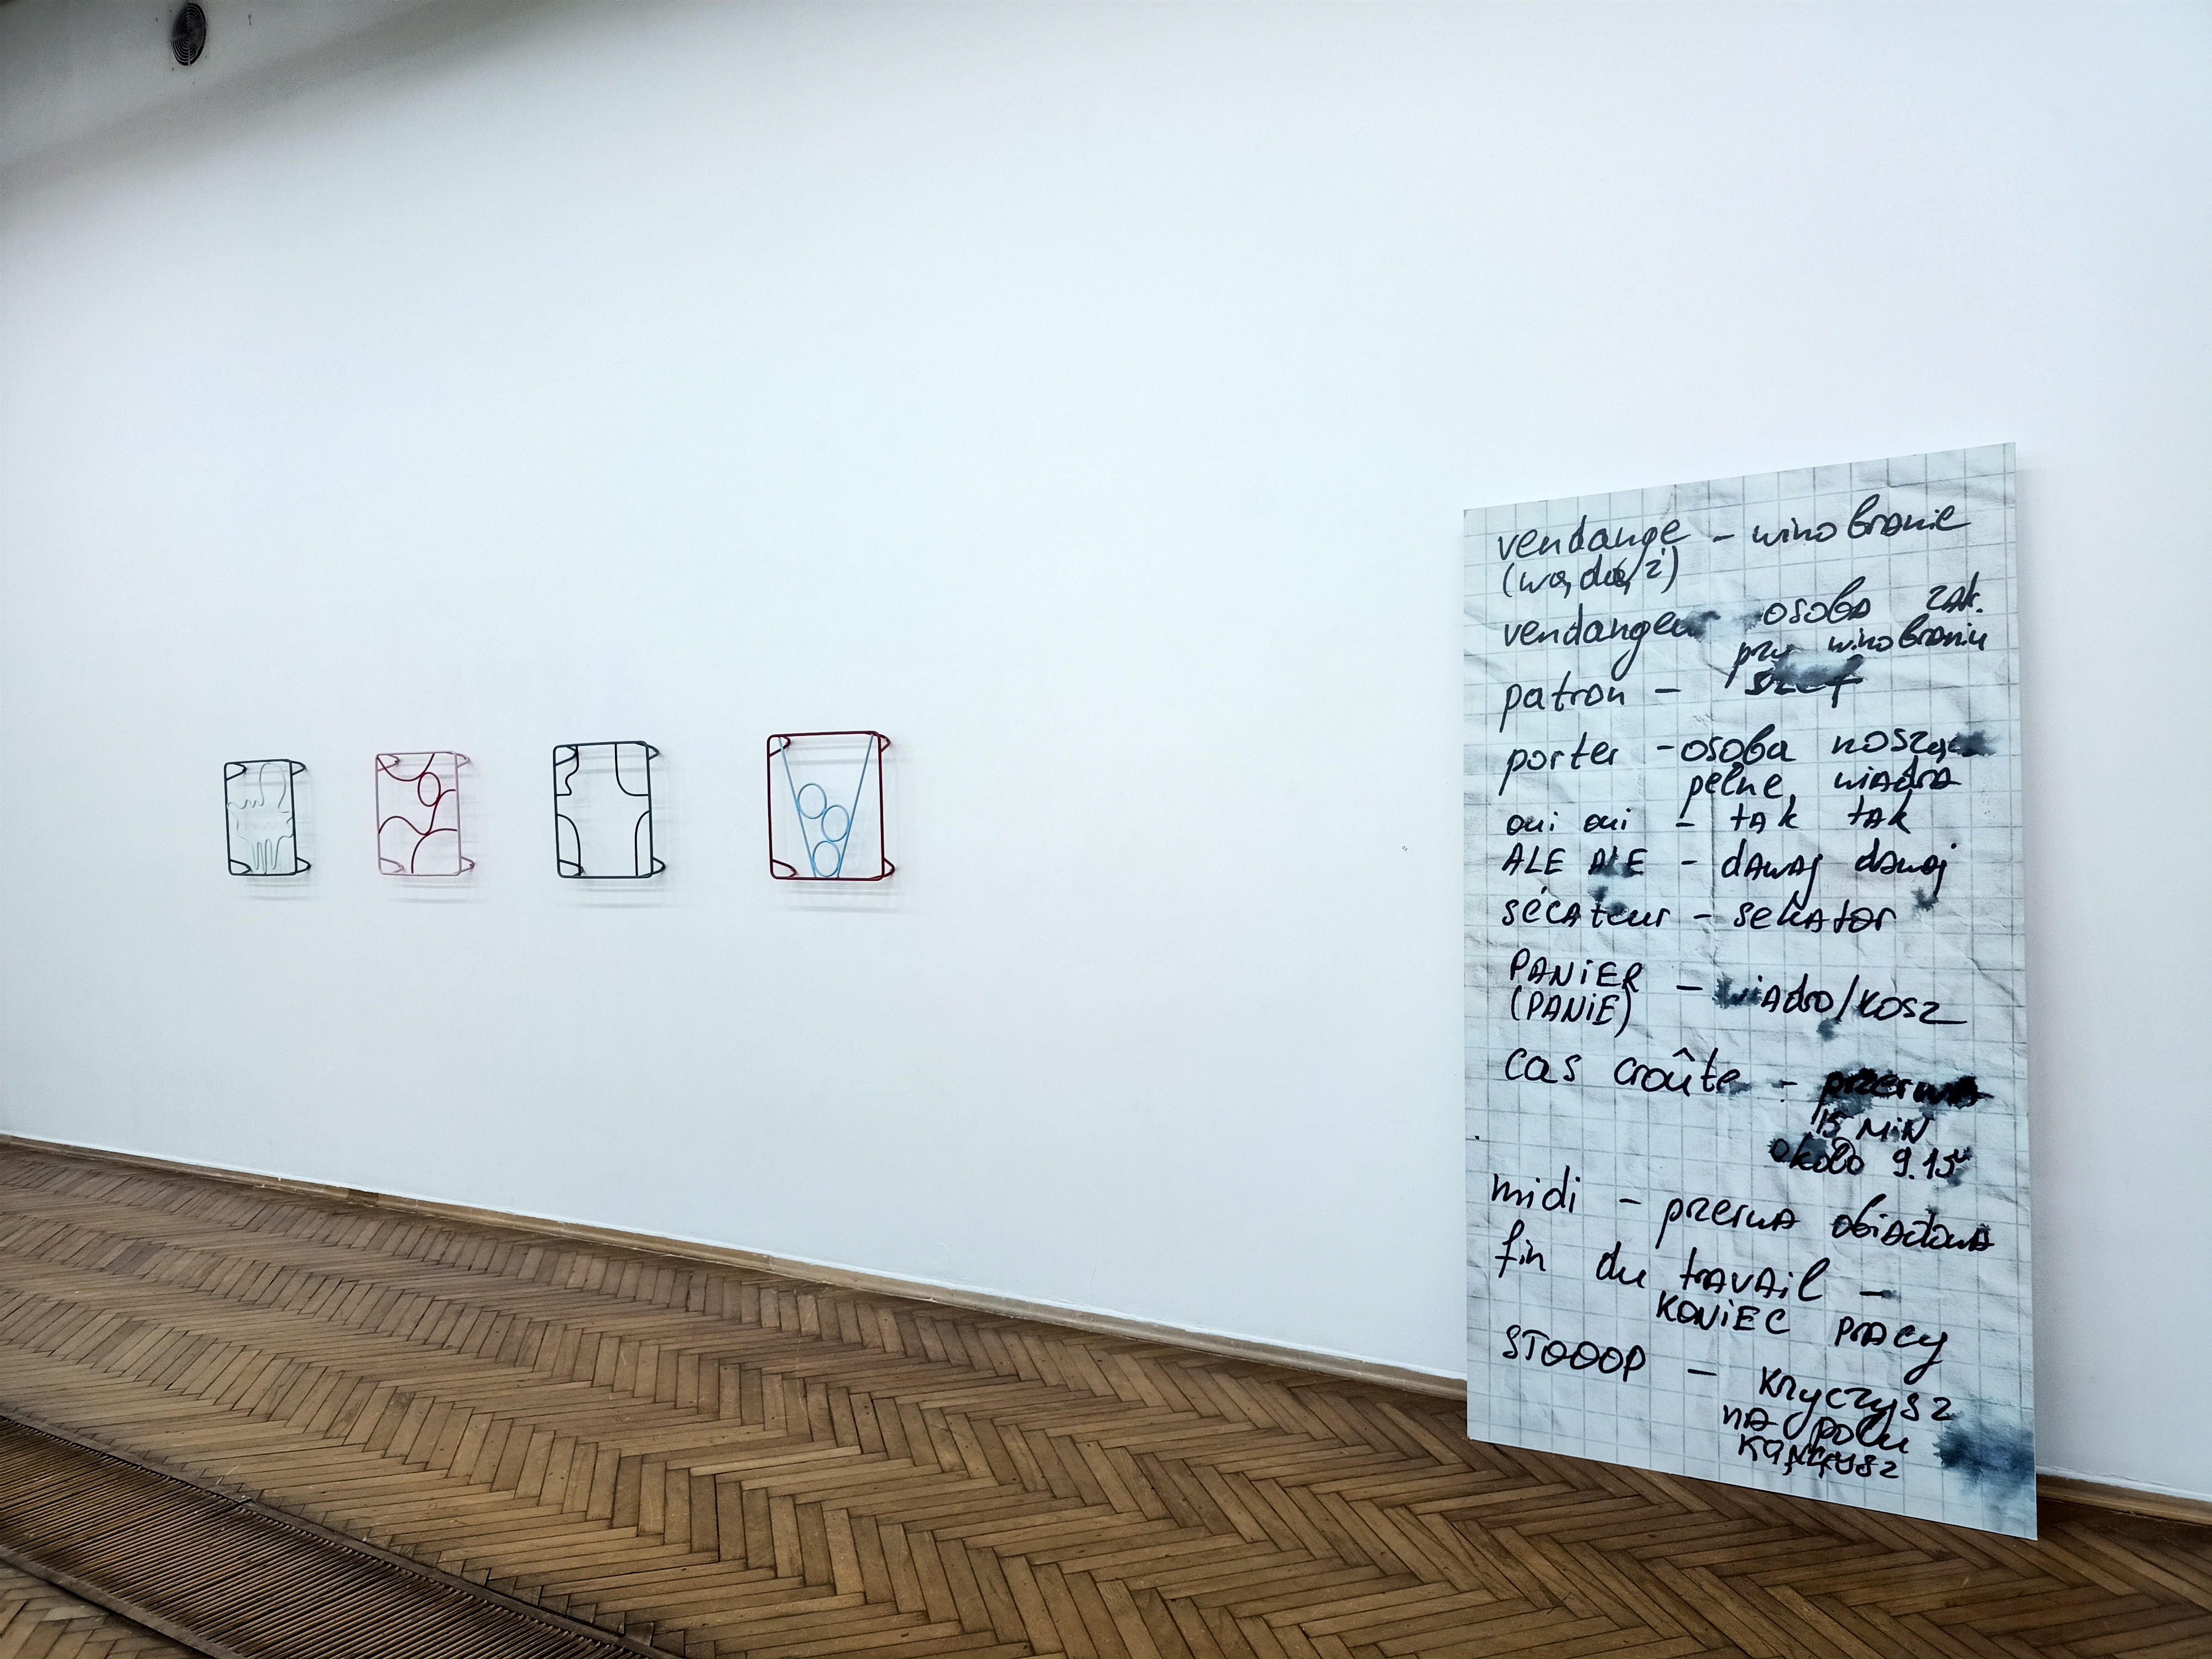 vendange - winobranie
(wą,dą,ż)
vendangeur - osoba zak.
przy winobraniu
patron - szef
porter - osoba noszą
pełne wiadra
oui oui - tak tak
ALE ALE - dawaj dawaj
sécateur - sekator
PANiER - wiadro/kosz
(PANiE)
cas croûte - przerwa
15 MiN
około 9.15
midi - przerwa obiadowa
fin du travail -
KONiEC pracy
STOOOP - krzyczysz
na polu